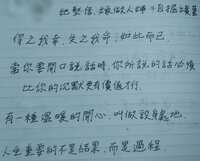 得之我幸,失之我命,如此而已
当你要開口說話時,你所說的話必須
比你的沉默更有價值才行
有一種溫暖的開心,叫做設身處地
人生重要的不是結果,而是過程